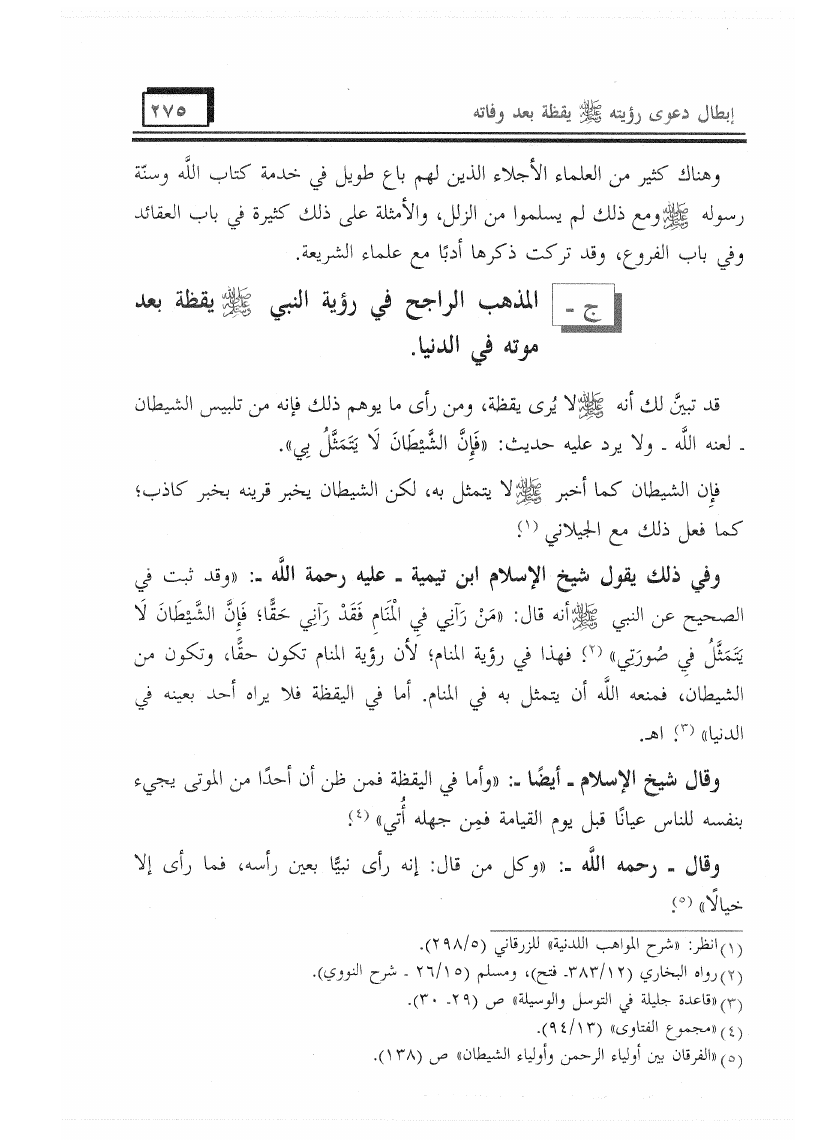 إبطال دعوى رؤيته ﷺ يقظة بعد وفاته
٢٧٥
وهناك كثير من العلماء الأجلاء الذين لهم باع طويل في خدمة كتاب اللَّه وسنّة
رسوله ﷺ ومع ذلك لم يسلموا من الزلل، والأمثلة على ذلك كثيرة في باب العقائد
وفي باب الفروع، وقد تركت ذكرها أدبًا مع علماء الشريعة.
ج ـ المذهب الراجح في رؤية النبي ﷺ يقظة بعد
موته في الدنيا.
قد تبيَّن لك أنه ﷺ لا يُرى يقظة، ومن رأى ما يوهم ذلك فإنه من تلبيس الشيطان
ـ لعنه اللَّه ـ ولا يرد عليه حديث: «فَإِنَّ الشَّيْطَانَ لَا يَتَمَثَّلُ بِي».
فإن الشيطان كما أخبر ﷺ لا يتمثل به، لكن الشيطان يخبر قرينه بخبر كاذب؛
كما فعل ذلك مع الجيلاني (١).
وفي ذلك يقول شيخ الإسلام ابن تيمية ـ عليه رحمة اللَّه ـ: «وقد ثبت في
الصحيح عن النبي ﷺ أنه قال: «مَنْ رَآنِي فِي الْمَنَامِ فَقَدْ رَآنِي حَقًّا؛ فَإِنَّ الشَّيْطَانَ لَا
يَتَمَثَّلُ فِي صُورَتِي» (٢). فهذا في رؤية المنام؛ لأن رؤية المنام تكون حقًّا، وتكون من
الشيطان، فمنعه اللَّه أن يتمثل به في المنام. أما في اليقظة فلا يراه أحد بعينه في
الدنيا» (٣). اهـ.
وقال شيخ الإسلام ـ أيضًا ـ: «وأما في اليقظة فمن ظن أن أحدًا من الموتى يجيء
بنفسه للناس عيانًا قبل يوم القيامة فمِن جهله أُتي» (٤).
وقال ـ رحمه اللَّه ـ: «وكل من قال: إنه رأى نبيًّا بعين رأسه، فما رأى إلا
خيالًا» (٥).
(١) انظر: «شرح المواهب اللدنية» للزرقاني (٢٩٨/٥).
(٢) رواه البخاري (٣٨٣/١٢ـ فتح)، ومسلم (٢٦/١٥ ـ شرح النووي).
(٣) «قاعدة جليلة في التوسل والوسيلة» ص (٢٩ـ ٣٠).
(٤) «مجموع الفتاوى» (٩٤/١٣).
(٥) «الفرقان بين أولياء الرحمن وأولياء الشيطان» ص (١٣٨).